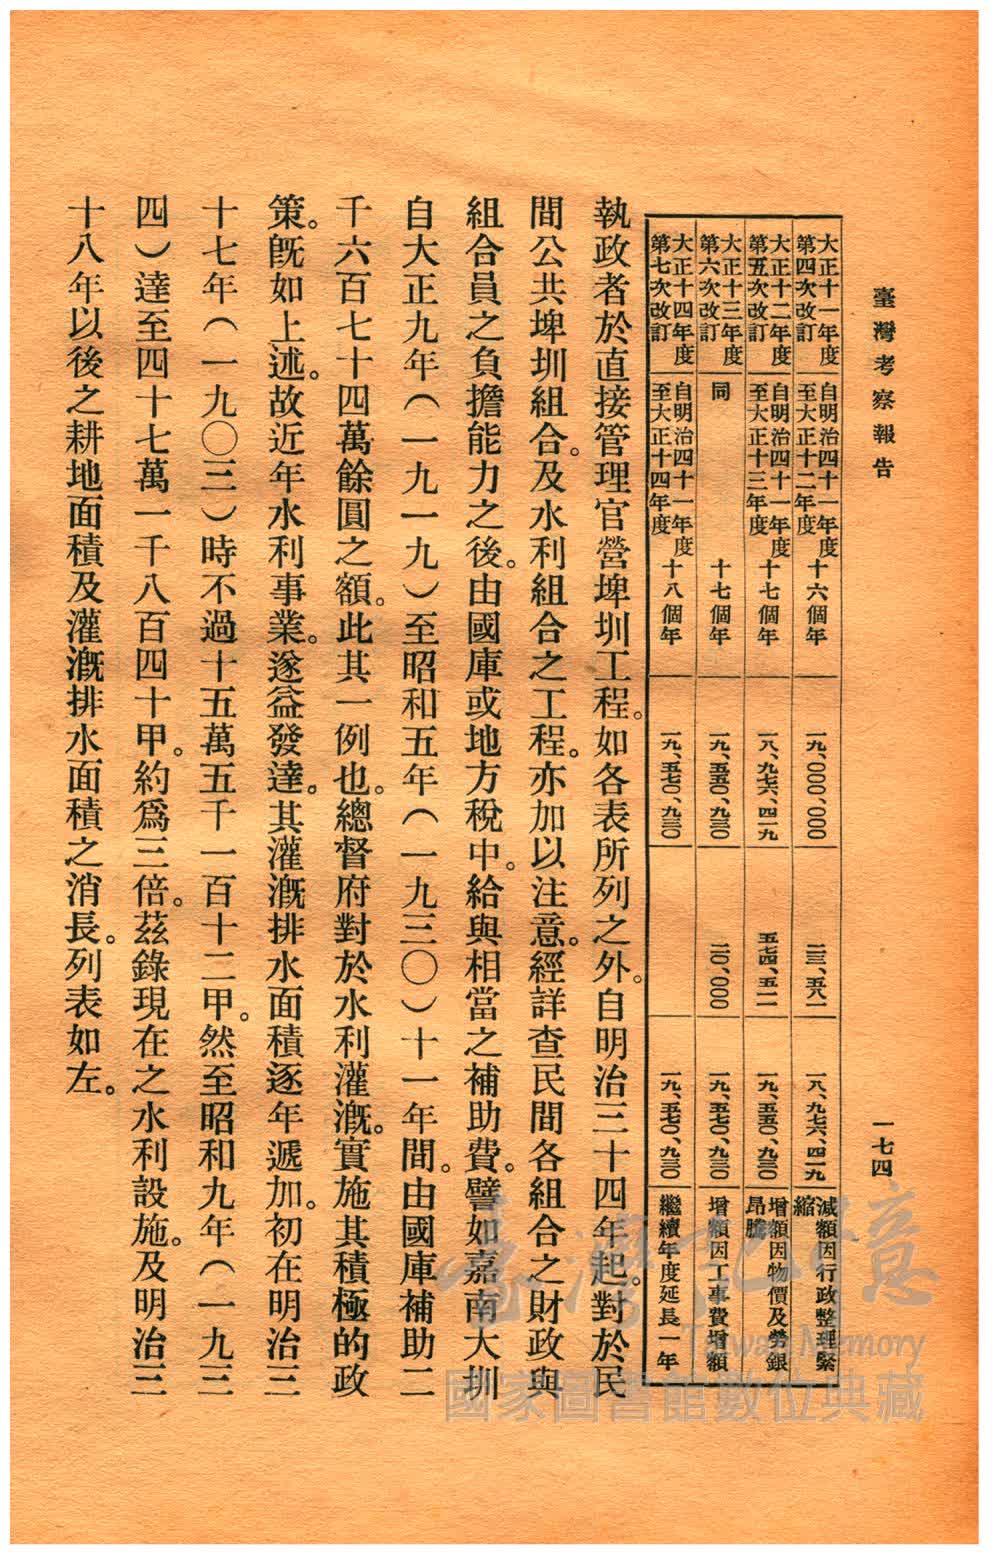 臺灣考察報告
一七四
大正十一年度
第四次改訂
自明治四十一年度
至大正十二年度
十六個年
一九、〇〇〇、〇〇〇
二三、五八一
一八、九七六、四一九
減額因行政整理緊
縮
大正十二年度
第五次改訂
自明治四十一年度
至大正十三年度
十七個年
一八、九七六、四一九
五七四、五一一
一九、五五〇、九三〇
增額因物價及勞銀
昂騰
大正十三年度
第六次改訂
同
十七個年
一九、五五〇、九三〇
二〇、〇〇〇
一九、五七〇、九三〇
增額因工事費增額
大正十四年度
第七次改訂
自明治四十一年度
至大正十四年度
十八個年
一九、五七〇、九三〇
一九、五七〇、九三〇
繼續年度延長一年
執政者於直接管理官營埤圳工程。如各表所列之外。自明治三十四年起。對於民
間公共埤圳組合。及水利組合之工程。亦加以注意。經詳查民間各組合之財政與
組合員之負擔能力之後。由國庫或地方稅中。給與相當之補助費。譬如嘉南大圳
自大正九年(一九一九)至昭和五年(一九三〇)十一年間。由國庫補助二
千六百七十四萬餘圓之額。此其一例也。總督府對於水利灌漑。實施其積極的政
策。既如上述。故近年水利事業。遂益發達。其灌漑排水面積逐年遞加。初在明治三
十七年(一九〇三)時不過十五萬五千一百十二甲。然至昭和九年(一九三
四)達至四十七萬一千八百四十甲。約爲三倍。茲錄現在之水利設施。及明治三
十八年以後之耕地面積及灌漑排水面積之消長。列表如左。
臺灣記憶
Taiwan Memory
國家圖書館數位典藏